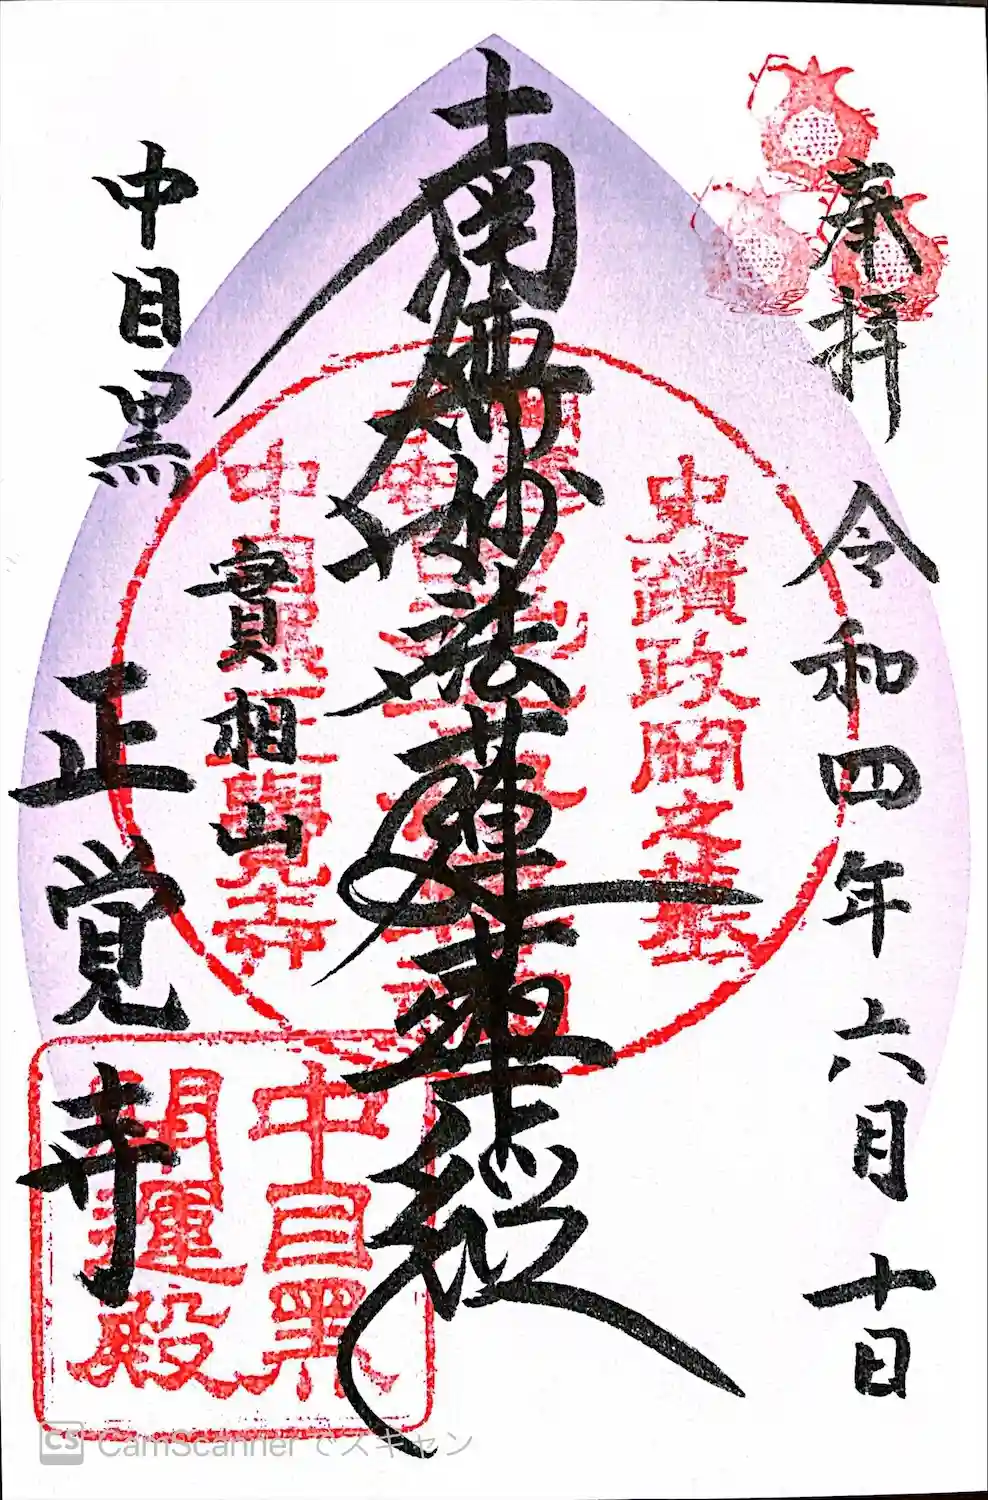 奉拝 令和四年六月十日
南無妙法蓮華経
中目黒
實相山
正覚寺
史蹟政岡之墓
中目黒正覺寺
中目黒
開運殿
CS CamScanner でスキャン